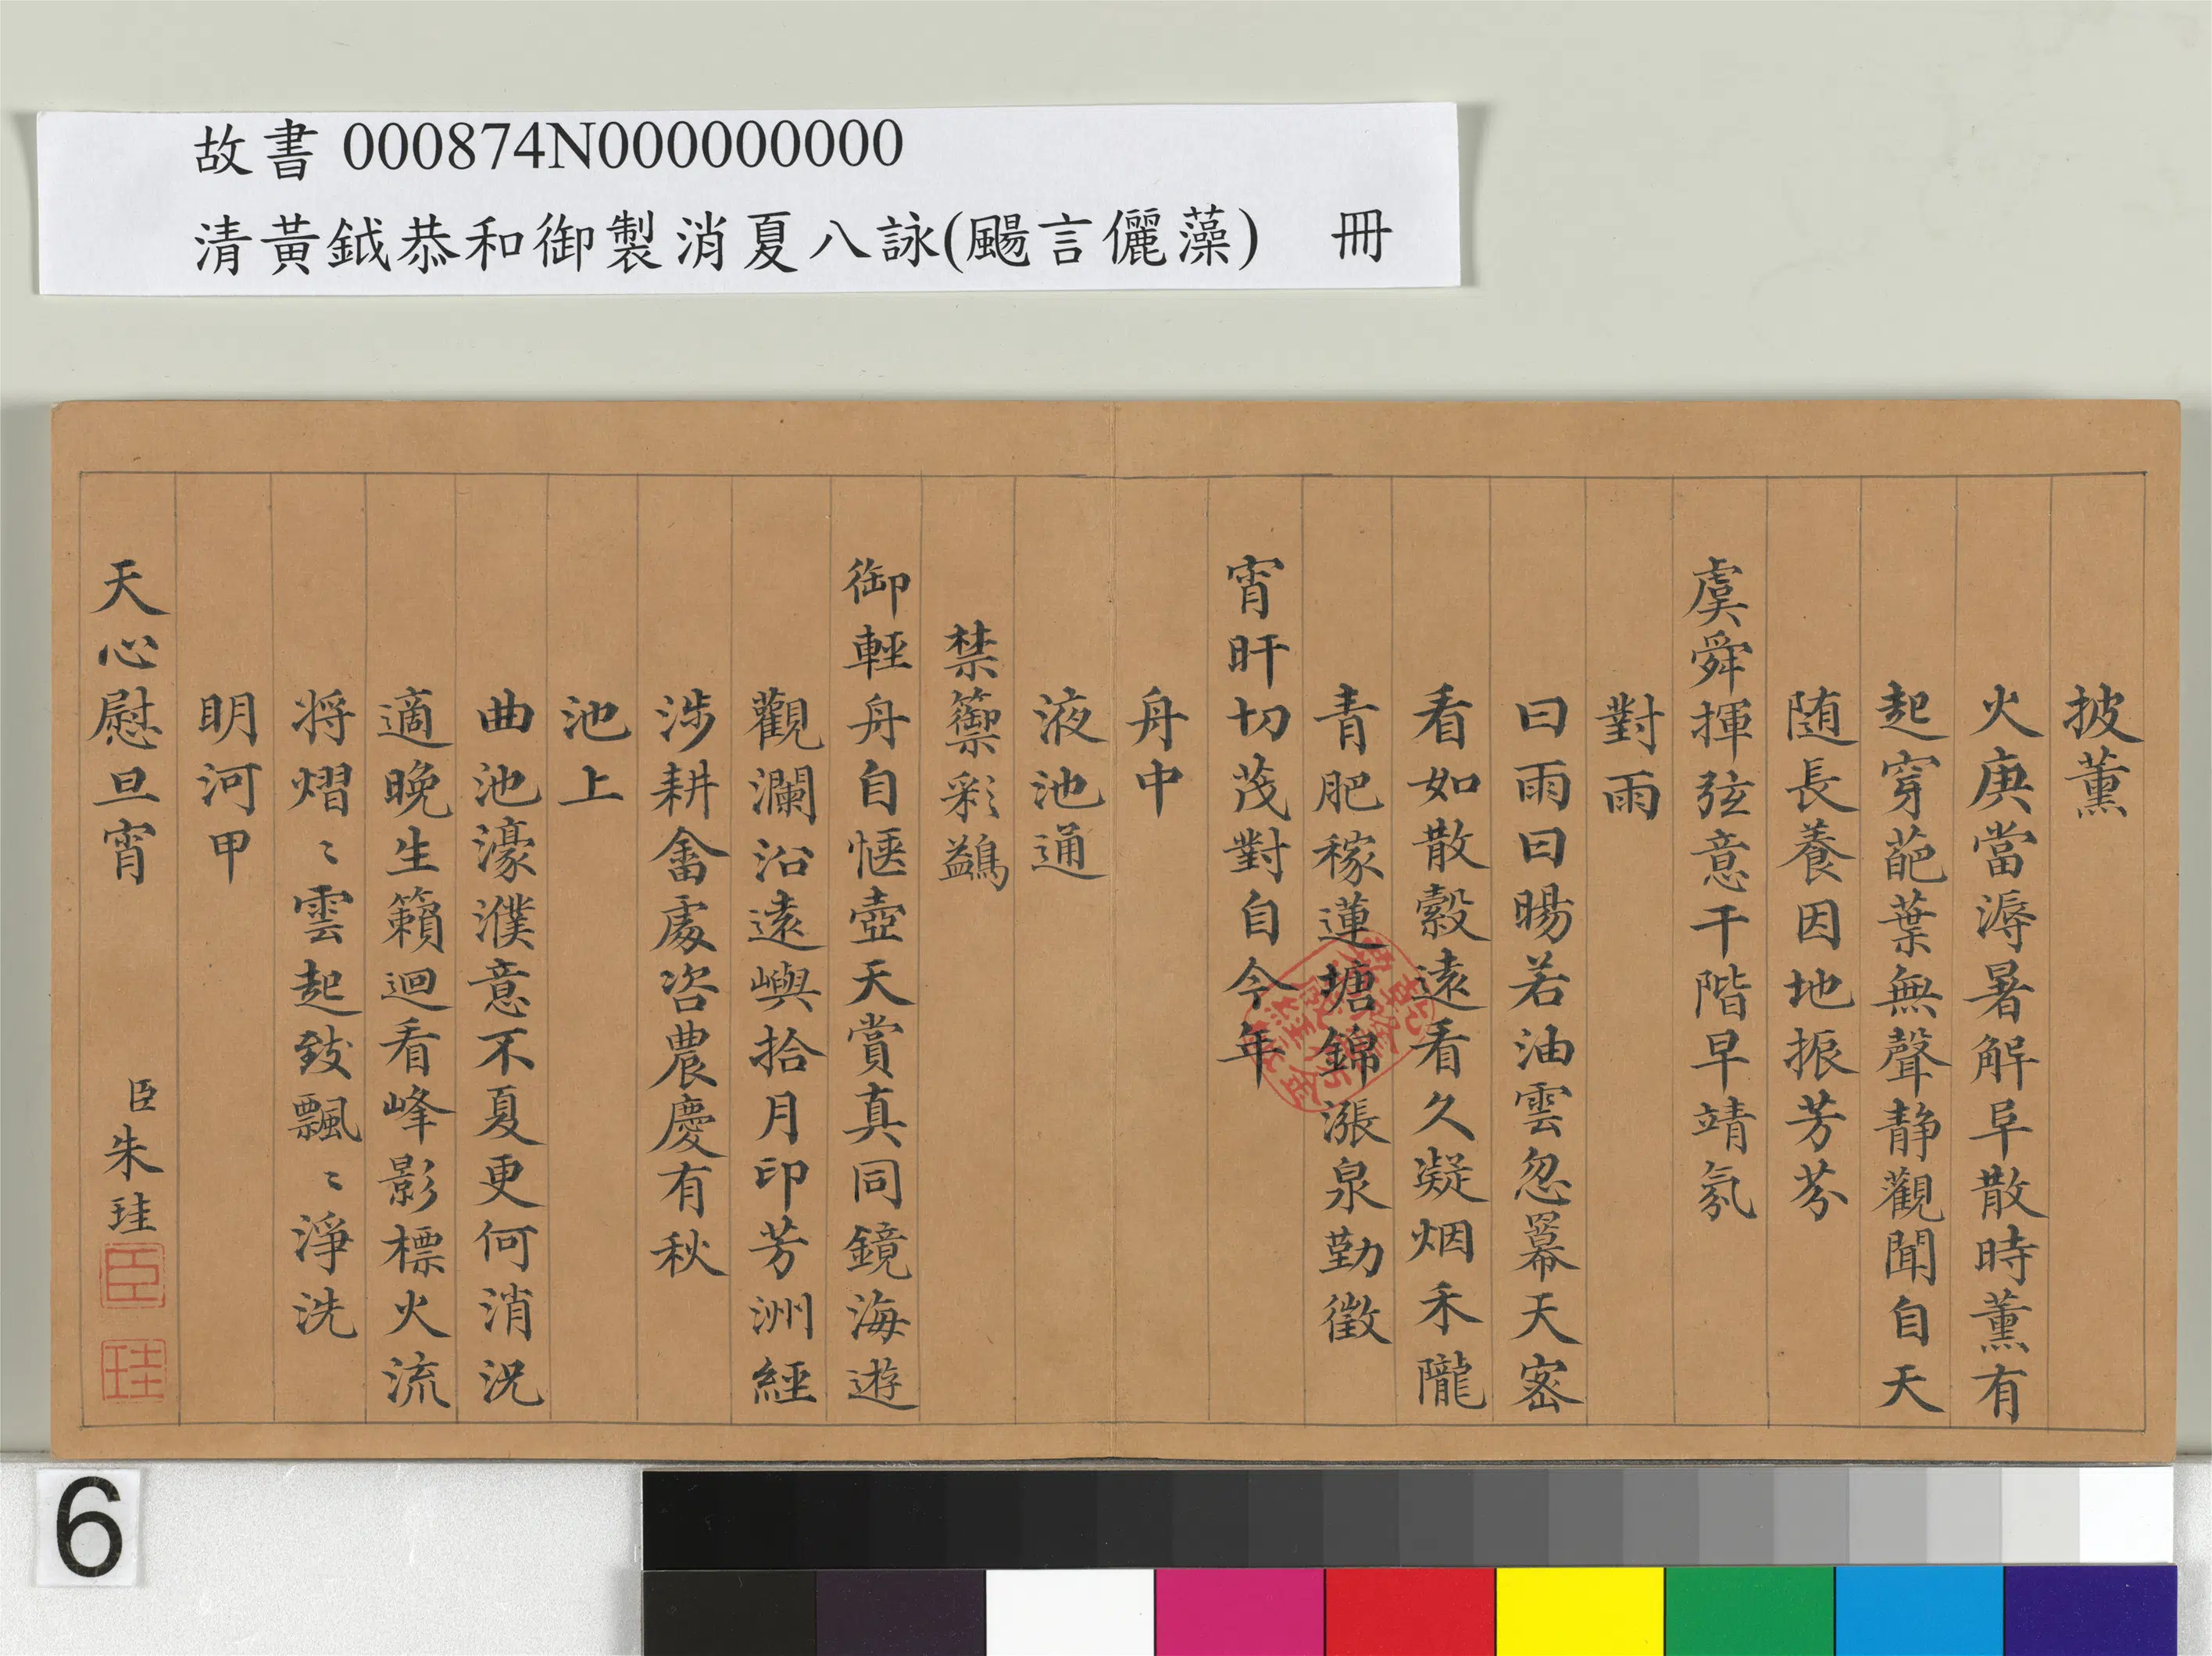 故書 000874N000000000
清黃鉞恭和御製消夏八詠(颺言儷藻) 冊
披薰
火庚當溽暑解阜散時薰有
起穿葩葉無聲静觀聞自天
随長養因地振芳芬
虞舜揮弦意干階早靖氛
對雨
曰雨曰暘若油雲忽冪天密
看如散縠遠看久凝烟禾隴
青肥稼蓮塘錦漲泉勤徵
宵旰切茂對自今年
舟中
液池通
禁籞彩鷁
御輕舟自愜壺天賞真同鏡海遊
觀瀾沿遠嶼拾月印芳洲經
涉耕畬處咨農慶有秋
池上
曲池濠濮意不夏更何消況
適晚生籟迴看峰影標火流
將熠〻雲起致飄〻淨洗
明河甲
天心慰旦宵 臣朱珪
臣
珪
6